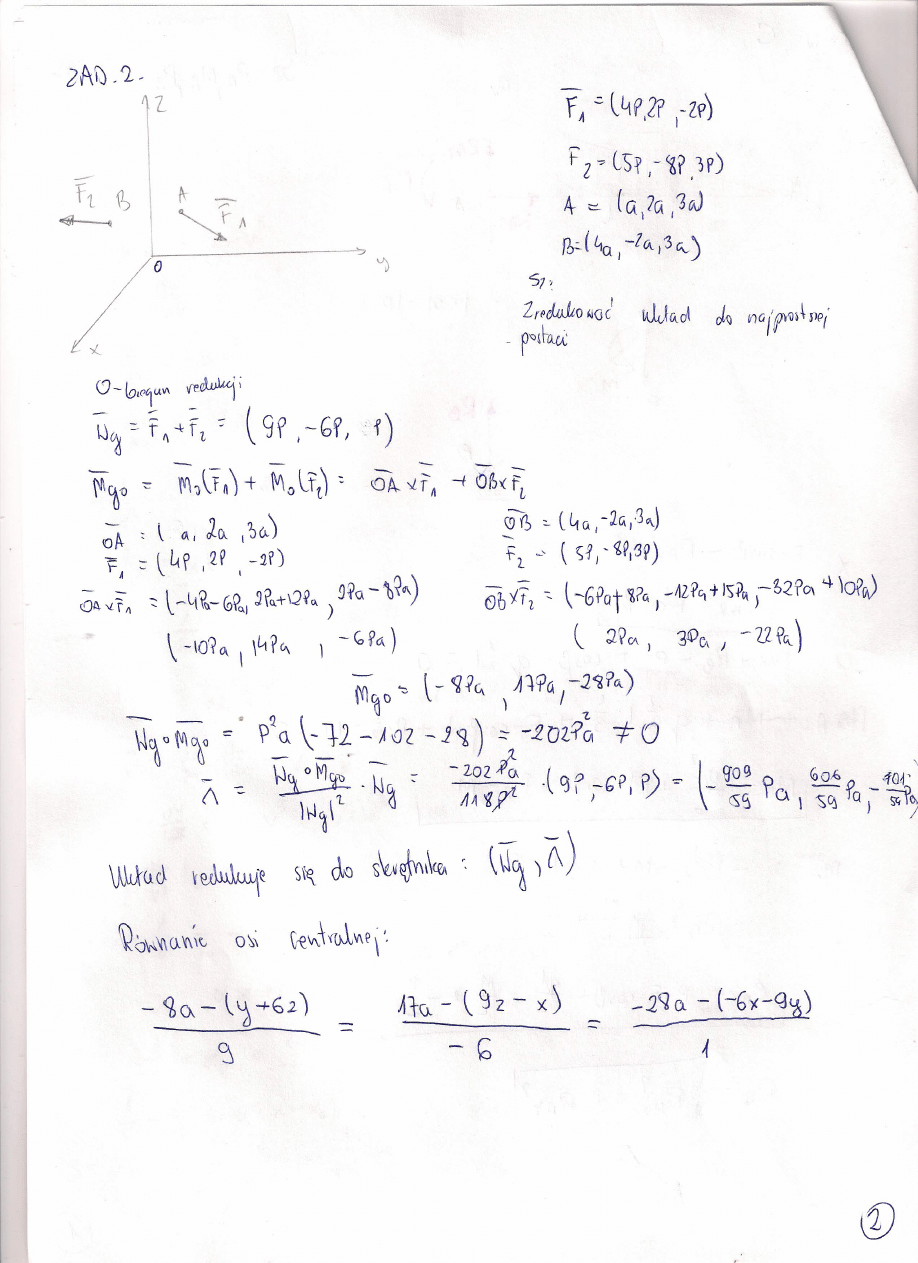 ZAD.2.
z
F̄₁ = (4P,2P,-2P)
F̄₂ = (5P,-8P,3P)
F̄₂ B A F̄₁
A = (a,2a,3a)
B=(4a,-2a,3a)
O y
x
Sz:
Zredukować układ do najprostszej
postaci
O-biegun redukcji
W̄g = F̄₁ + F̄₂ = (9P,-6P, P)
M̄go = M̄o(F̄₁) + M̄o(F̄₂) = ŌA × F̄₁ + ŌB×F̄₂
ŌA = (a, 2a, 3a) ŌB = (4a,-2a,3a)
F̄₁ = (4P, 2P, -2P) F̄₂ = (5P,-8P,3P)
ŌA×F̄₁ = (-4Pa-6Pa, 2Pa+12Pa, 2Pa-8Pa) ŌB×F̄₂ = (-6Pa+8Pa, -12Pa+15Pa, -32Pa+10Pa)
(-10Pa, 14Pa, -6Pa) (2Pa, 3Pa, -22Pa)
M̄go = (-8Pa, 17Pa, -28Pa)
W̄g∘M̄go = P²a(-72-102-28) = -202P²a ≠ 0
Λ̄ = W̄g∘M̄go / |Wg|² · W̄g = -202P²a / 118P² · (9P,-6P,P) = (-909/59 Pa, 606/59 Pa, -101/59 Pa)
Układ redukuje się do skrętnika: (W̄g, Λ̄)
Równanie osi centralnej:
-8a-(y+6z) / 9 = 17a-(9z-x) / -6 = -28a-(-6x-9y) / 1
2